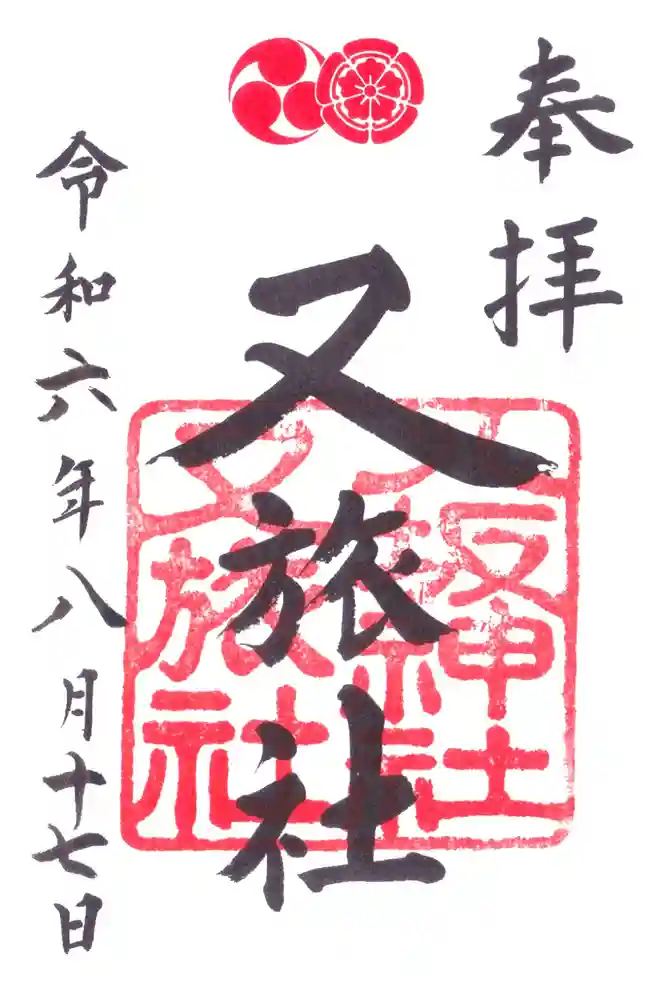 奉拝
又旅社
又旅社
令和六年八月十七日